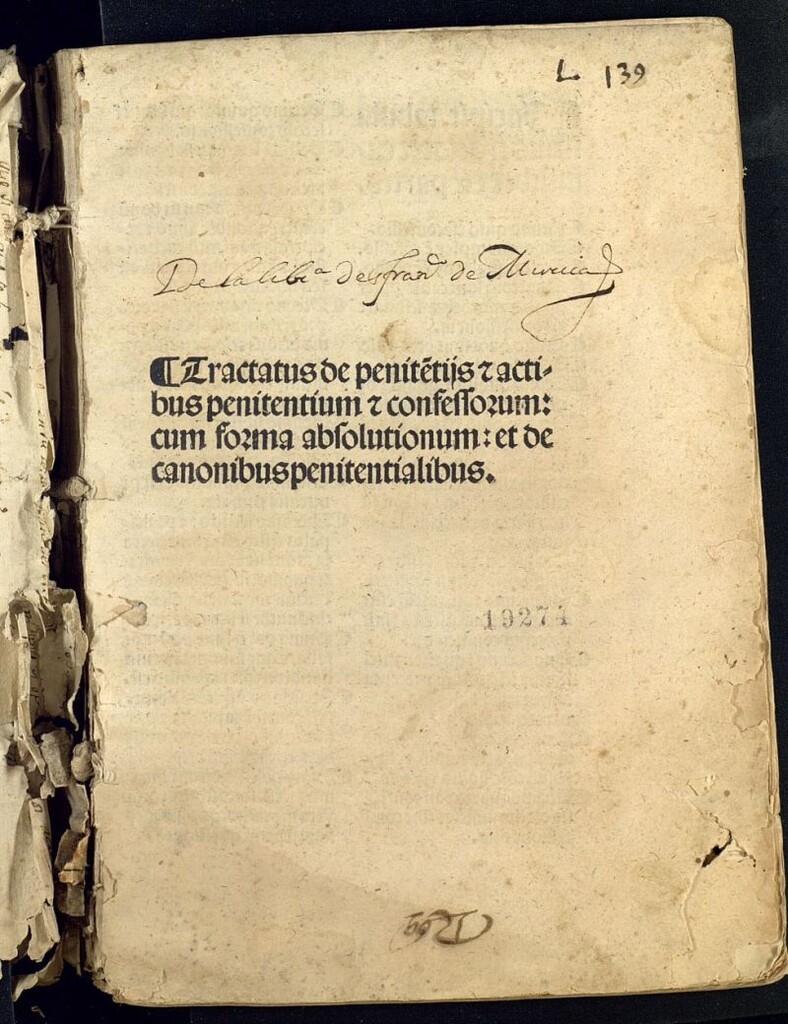 L 139
De la lib.ª de S fran.co de Murcia
¶ Tractatus de penitẽtijs ⁊ acti-
bus penitentium ⁊ confeſſoꝛum:
cum foꝛma abſolutionum: et de
canonibus penitentialibus.
19274